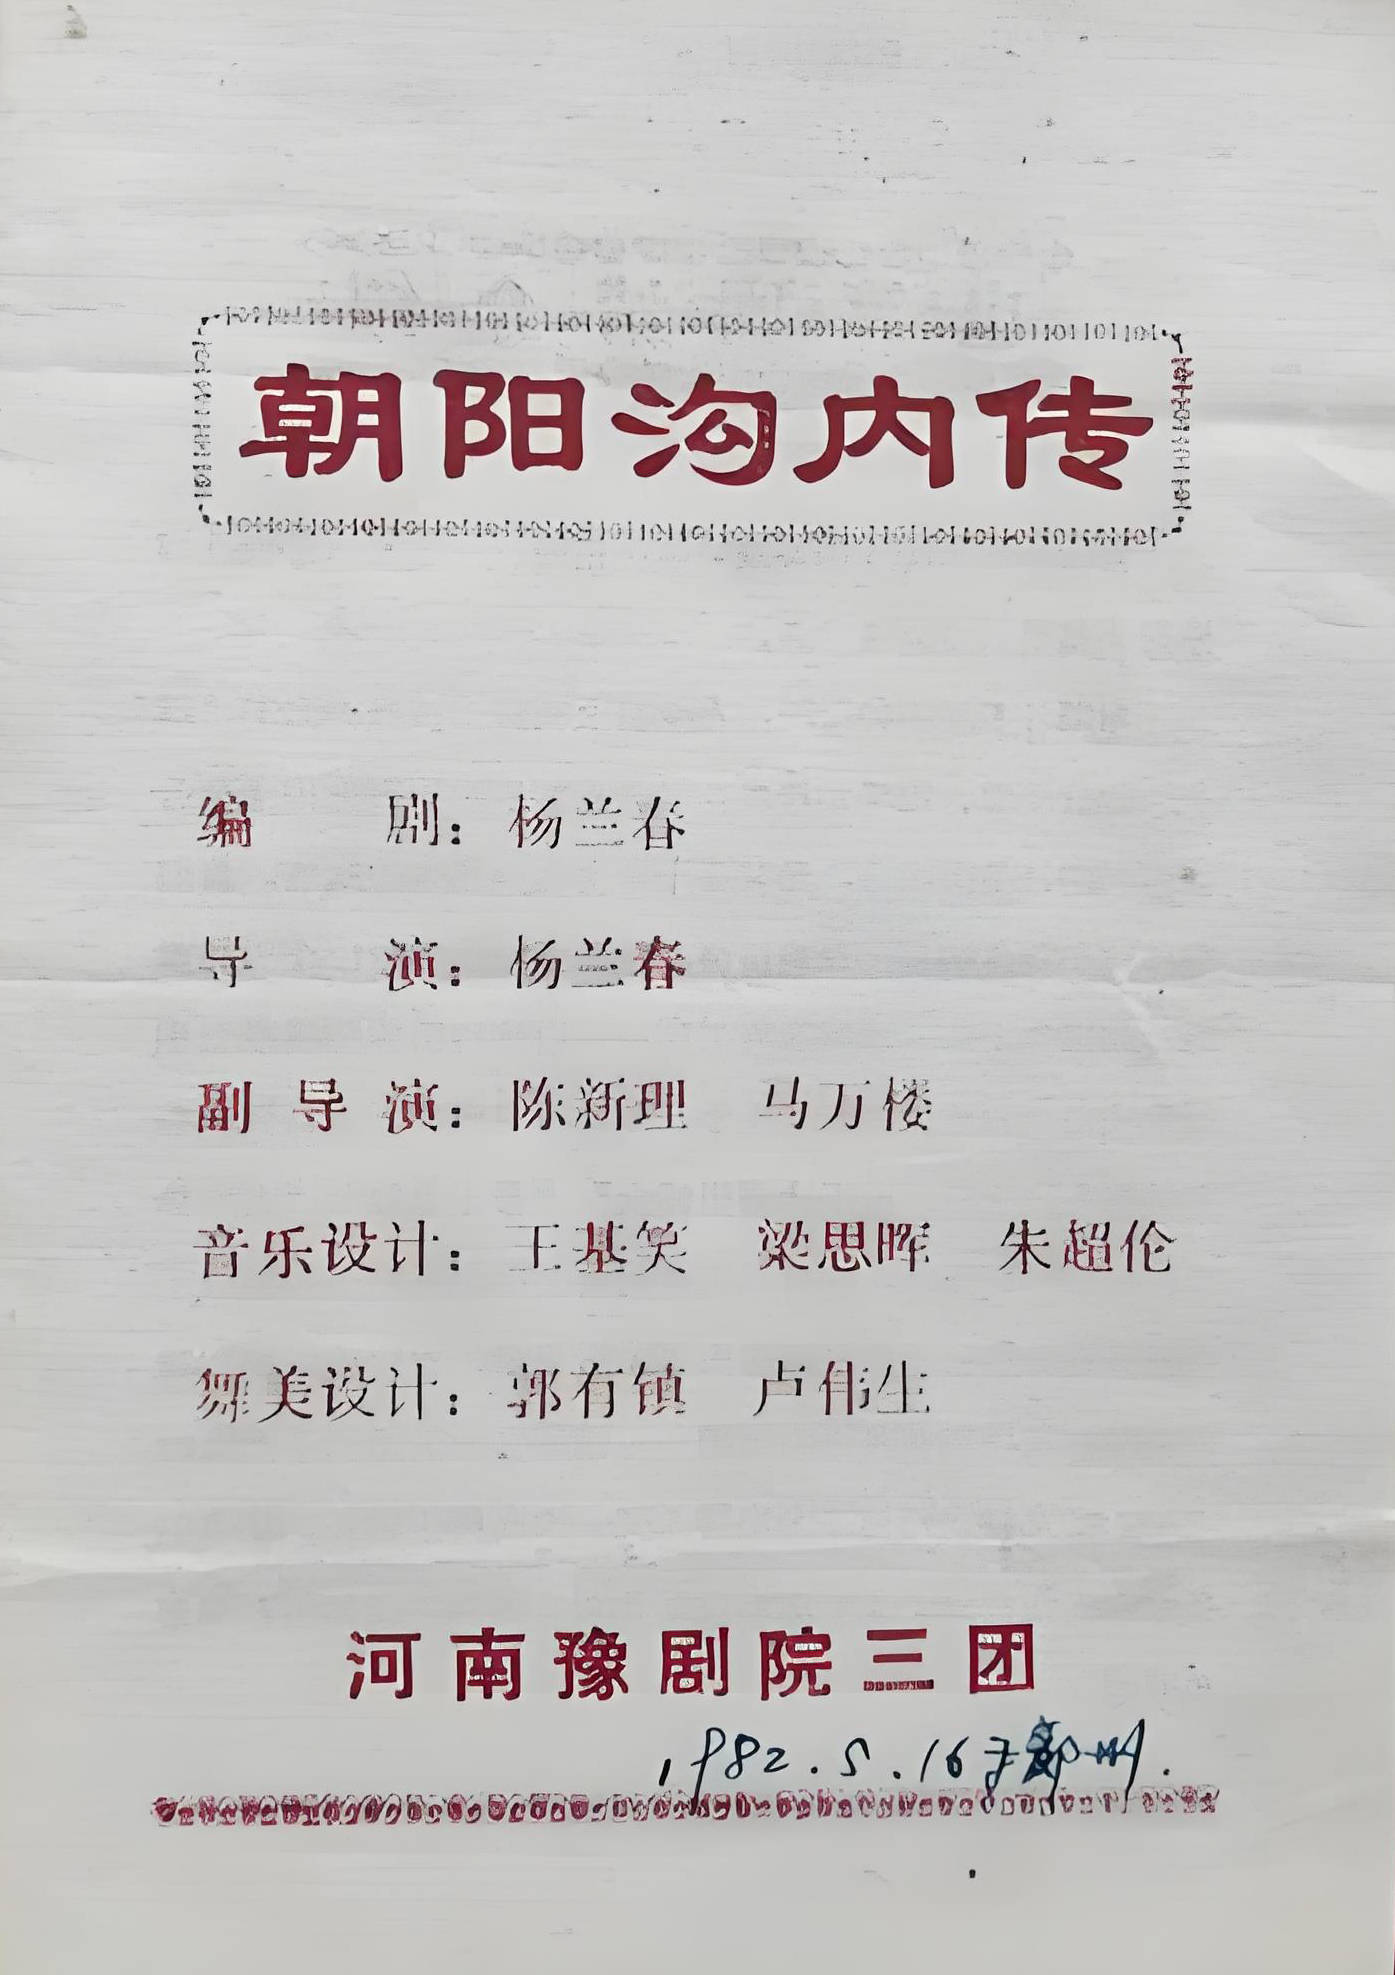 朝阳沟内传
编 剧：杨兰春
导 演：杨兰春
副 导 演：陈新理 马万楼
音乐设计：王基笑 梁思晖 朱超伦
舞美设计：郭有镇 卢伟生
河南豫剧院三团
1982.5.16于郑州.